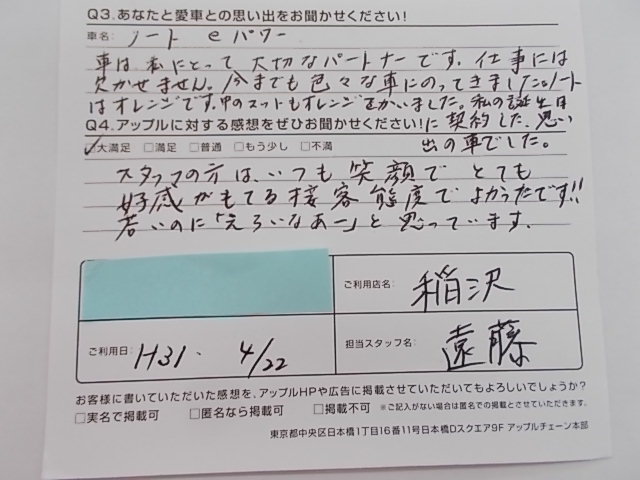 Q3.あなたと愛車との思い出をお聞かせください!
車名: ノート eパワー
車は私にとって大切なパートナーです。仕事には
欠かせません。今までも色々な車にのってきました。ノート
はオレンジです。中のマットもオレンジをかいました。私の誕生日
Q4.アップルに対する感想をぜひお聞かせください! に契約した、思い
□大満足 □満足 □普通 □もう少し □不満 出の車でした。
スタッフの方は、いつも笑顔でとても
好感がもてる接客態度でよかったです!!
若いのに「えらいなあー」と思っています。
ご利用店名: 稲沢
ご利用日: H31. 4/22
担当スタッフ名: 遠藤
お客様に書いていただいた感想を、アップルHPや広告に掲載させていただいてもよろしいでしょうか?
□実名で掲載可 □匿名なら掲載可 □掲載不可 ※ご記入がない場合は匿名での掲載とさせていただきます。
東京都中央区日本橋1丁目16番11号日本橋Dスクエア9F アップルチェーン本部